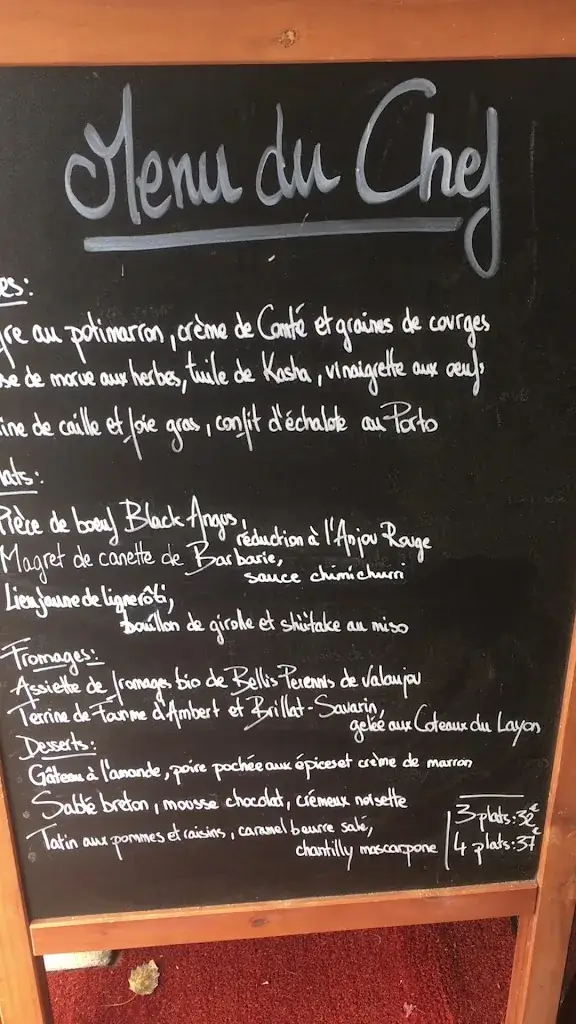 Menu du Chef
es:
re au potimarron, crème de Comté et graines de courges
se de morue aux herbes, tuile de Kasha, vinaigrette aux oeufs
ine de caille et foie gras, confit d'échalote au Porto
lats:
Pièce de boeuf Black Angus,
réduction à l'Anjou Rouge
Magret de canette de Barbarie,
sauce chimichurri
Lieu jaune de ligne rôti,
bouillon de girolle et shiitake au miso
Fromages:
Assiette de fromages bio de Bellis Perennis de Valanjou
Terrine de Fourme d'Ambert et Brillat-Savarin,
gelée aux Coteaux du Layon
Desserts:
Gâteau à l'amande, poire pochée aux épices et crème de marron
Sablé breton, mousse chocolat, crémeux noisette
Tatin aux pommes et raisins, caramel beurre salé,
chantilly mascarpone
3 plats: 32€
4 plats: 37€